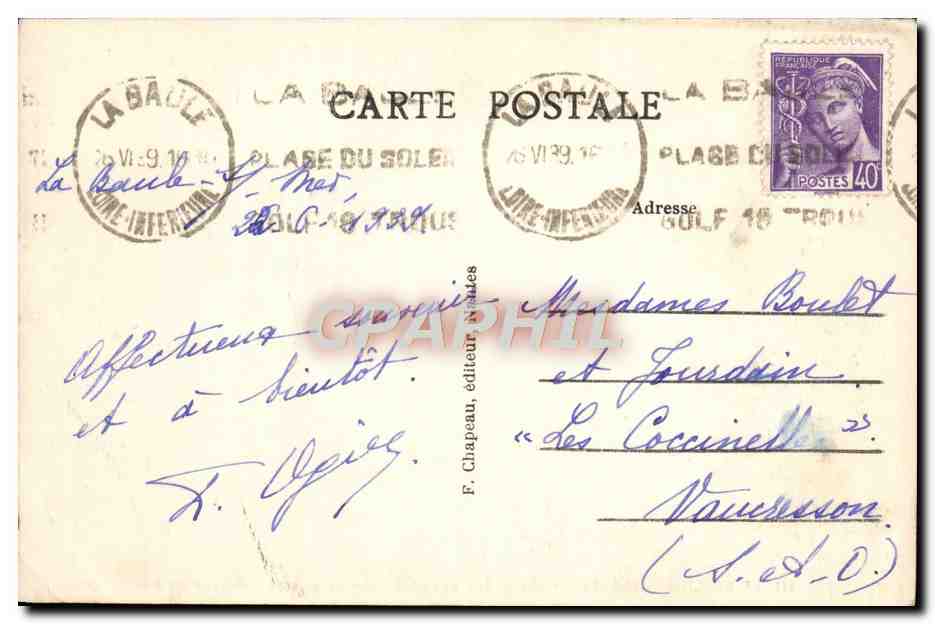 CARTE POSTALE
LA BAULE
26 VI 39. 16
LOIRE-INFERIEURE
LA BAULE
PLAGE DU SOLEIL
GOLF 18 TROUS
LA BAULE
26 VI 39. 16
LOIRE-INFERIEURE
LA BA
PLAGE DU SOLE
GOLF 18 TROU
RÉPUBLIQUE
FRANÇAISE
POSTES 40c
La Baule-s/Mer,
6-1939
Affectueux souvenir
et à bientôt.
F. Chapeau, éditeur, Nantes
Adresse
Mesdames Boulet
et Jourdain.
"Les Coccinelles".
Vaucresson.
(S.-et-O.)
CPAPHIL